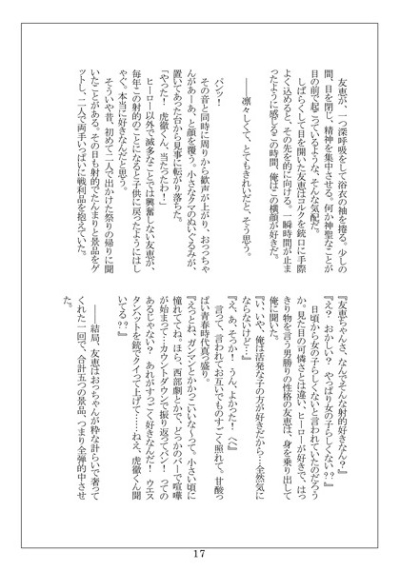 友恵が、一つ深呼吸をして浴衣の袖を捲る。少しの
間、目を閉じ、精神を集中させる。何か神聖なことが
目の前で起こっているような、そんな気配だ。
しばらくして目を開いた友恵はコルクを銃口に手際
よく込めると、その先を的に向ける。一瞬時間が止ま
ったように感じるこの時間、俺はこの横顔が好きだ。
――凛々しくて、とてもきれいだと、そう思う。
パンッ！
その音と同時に周りから歓声が上がり、おっっちゃ
んがあーあ、と顔を覆う。小さなクマのぬいぐるみが、
置いてあった台から見事に転がり落ちた。
「やった！　虎徹くん、当たったわ！」
ヒーロー以外で滅多なことでは興奮しない友恵が、
毎年この射的のことになると子供に戻ったようにはし
ゃぐ。本当に好きなんだと思う。
そういや昔、初めて二人で出かけた祭りの帰りに聞
いたことがある。その日も射的でたんまりと景品をゲ
ットし、二人で両手いっぱいに戦利品を抱えていた。
『友恵ちゃんさ、なんでそんな射的好きなん？』
『え？　おかしい？　やっぱり女の子らしくない??』
日頃から女の子らしくないと言われていたのだろう
か。見た目の可憐さとは違い、ヒーローが好きで、はっ
きり物を言う男勝りの性格の友恵は、身を乗り出して
俺に聞いた。
『い、いや、俺は活発な子の方が好きだから…全然気に
ならないけど…』
『え、あ、そっか！　うん、よかった！　へへ』
言って、言われてお互いでものすごく照れて。甘酸っ
ぱい青春時代真っ盛り。
『えっとね、ガンマンとかかっこいいな～って。小さい頃に
憧れててね。ほら、西部劇とかで、どっかのバーで喧嘩
が始まって…カウントダウンで振り返ってバン！　っての
あるじゃない？　あれがすっごく好きなんだ！　ウエス
タンハットを銃でクイって上げて……ねえ、虎徹くん聞
いてる??』
――結局、友恵はおっちゃんが粋な計らいで奢って
くれた一回で、合計五つの景品、つまり全弾的中させ
た。
17